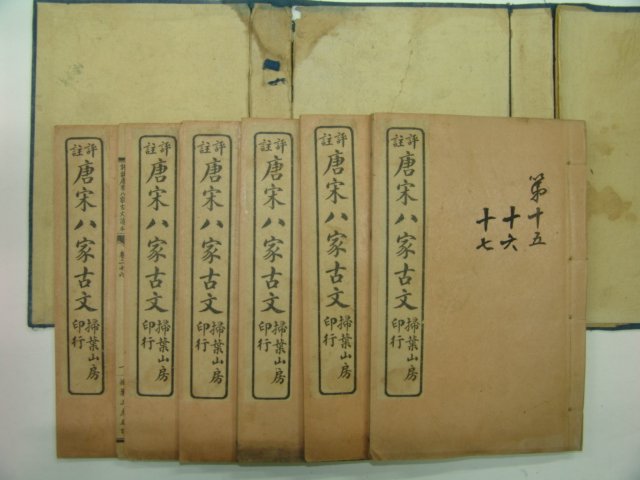 第十五
十六
十七
評註
唐宋八家古文
掃葉山房
印行
評註
唐宋八家古文
掃葉山房
印行
評註
唐宋八家古文
掃葉山房
印行
評註
唐宋八家古文
掃葉山房
印行
評註
唐宋八家古文
掃葉山房
印行
評註
唐宋八家古文
掃葉山房
印行